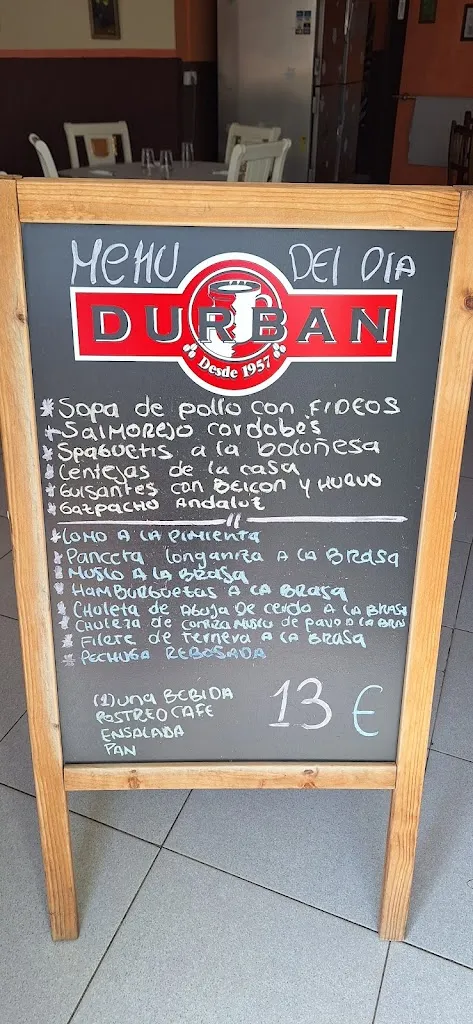 MENU DEL DIA
DURBAN
Desde 1957
* Sopa de pollo con FIDEOS
* SalMOREJO cordobés
* SPaGUETIS a la boloñesa
* Lentejas de la casa
* Guisantes con BEICON Y HUEVO
* GAZPACHO Andaluz
* LOMO A LA PIMIENTA
* Panceta longaniza A LA BRASA
* MUSLO A la BRaSA
* HaMBURGUEtas A la BRasa
* Chuleta de AGUJA DE cerdo A la BRASA
* Chuleta de contra MUSLO de pavo A la BRA
* Filete de ternera A la BRASA
* PECHUGA REBOSADA
(1) una BEBIDA
POSTRE O CAFE
ENSALADA
PAN
13 €